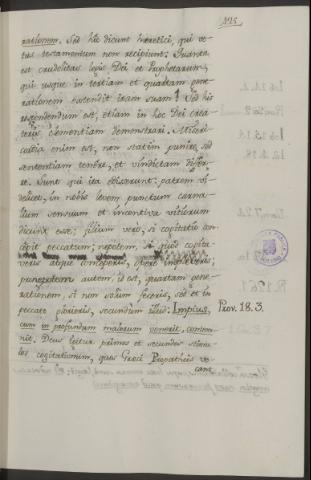 125
rationem. Sed hic dicunt hæretici, qui ve-
tus testamentum non recipiunt: Quanta
est crudelitas legis Dei et Prophetarum,
qui usque in tertiam et quartam gene-
rationem extendit iram suam! Sed his
respondendum est, etiam in hoc Dei crea-
toris clementiam demonstrari. Miseri-
cordia enim est, non statim punire sed
sententiam tenere, et vindictam differ-
re. Sunt qui ita edisserunt: patrem vi-
delicet, in nobis levem punctum carna-
lium sensuum et incentiva vitiorum
dicunt esse; filium vero, si cogitatio con-
cepit peccatum; nepotem, si quod cogita-
veris atque conceperis, opere impleveris;
pronepotem autem, id est, quartam gene-
rationem, si non solum feceris, sed et in
peccato gloriaris, secundum illud: Impius,
cum in profundum malorum venerit, contem-
nit. Deus igitur primos et secundos stimu-
los cogitationum, quas Græci Propatheis vo-
cant
Prov. 18. 3.